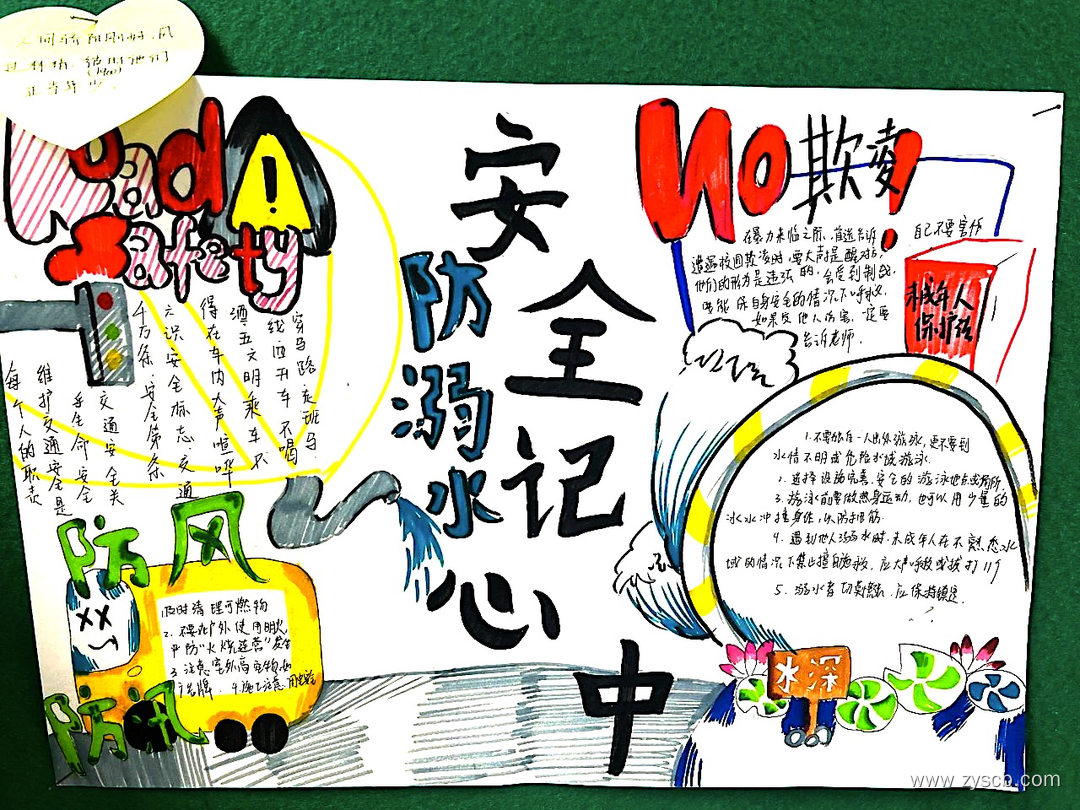 Road
Safety
安全记心中
防溺水
NO欺凌!
在暴力来临之际,首选告诉
自己不要害怕
遭遇校园欺凌时,要大声提醒对方,
他们的行为是违法的,会受到制裁,
如果受他人伤害,一定要
告诉老师.
未成年人
保护法
穿马路走斑马
线 开车不喝
酒 文明乘车不
得在车内大声喧哗
识安全标志 交通
千万条 安全第一条
交通安全关
乎生命安全
维护交通安全是
每个人的职责
1.不要独自一人出外游泳,更不要到
水情不明或危险水域游泳.
2.选择设施完善、安全的游泳地点或场所.
3.游泳前要做热身运动,也可以用少量的
冰水冲撞身体,以防抽筋.
4.遇到他人溺水时,未成年人在不熟悉水
域的情况下禁止擅自施救,应大声呼救或拨打
5.溺水者切莫慌张,应保持镇定.
防风
及时清理可燃物
2.不要在户外使用明火,
严防“火烧连营”发生
3.注意室外高空物,如
广告牌.
防汛
水深
www.zyscb.com